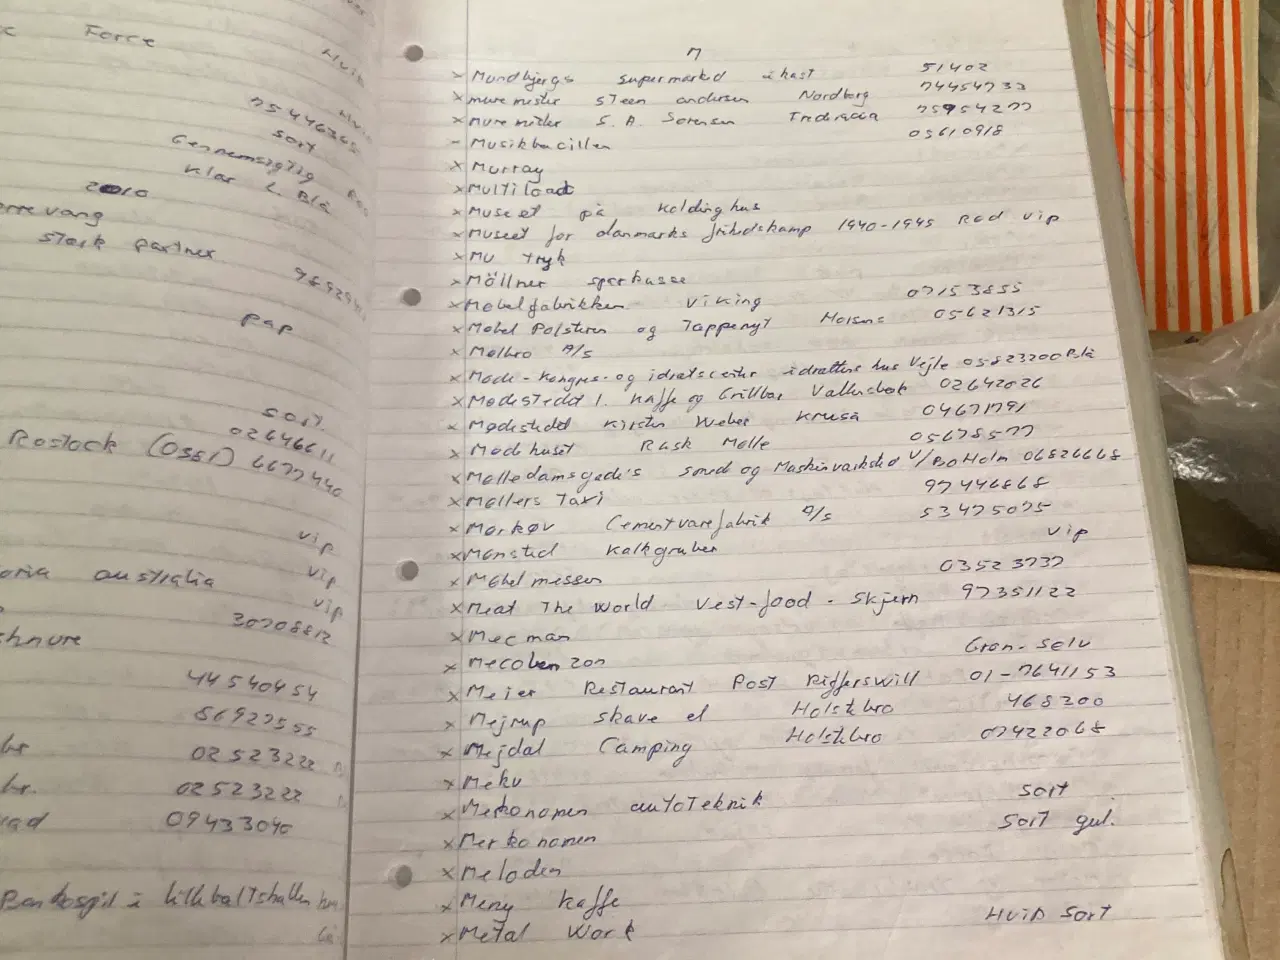 Force
Hvid
75446365
sort
Gennemsigtig
Klar & Blå
2010
stark partner
pap
sort.
02646611
Rostock (OSSI) 6677440
vip
vip
oria australia vip
30708812
44540454
86927555
02523222
02523222
09433040
M
x Mundbjergs supermarked ikast 51402
x muremester Steen andersen Nordborg 74454733
x muremester S. A. Sørensen Fredricia 75954277
- Musikbacillen 05610918
x Murray
x Multiload
x Museet på Koldinghus
x Museet for danmarks frihedskamp 1940-1945 Rød vip
x MV Tryk
x Möllner sparkasse
x Møbelfabrikken Viking 07153855
x Møbel Polstren og Tappenyt Horsens 05621315
x Mølbro A/S
x Møde-Kongres-og idrætscenter idrættens hus Vejle 05823200 Blå
x Mødestedet 1. Kaffe og Grillbar Vallensbæk 02642026
x Mødestedet Kirsten Weber Kruså 04671791
x Mødhuset Rask Mølle 05678577
x Mølledamsgade's smed og Maskinværksted v/Bo Holm 06826668
x Møllers Taxi 97446868
x Mørkøv Cementvarefabrik A/S 53475075
x Mønsted Kalkgruber vip
x Møbelmessen 03523737
x Meat The World Vest-food - Skjern 97351122
x Mecman
x Mecobenzon Grøn-Sølv
x Meier Restaurant Post Rifferswill 01-7641153
x Mejrup skave el Holstebro 468200
x Mejdal Camping Holstebro 07422068
x Mekv
x Merkonomen autoteknik sort
x Merkonomen Sort gul.
x Meloden
x Meny Kaffe
x Metal Work HVID Sort